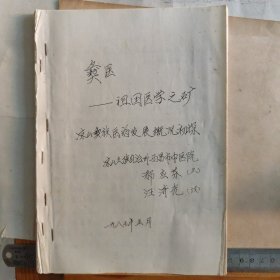 彝医
——祖国医学之矿
凉山彝族医药发展概况初探
凉山彝族自治州西昌市中医院
郝应芬
汪济克
一九八七年五月